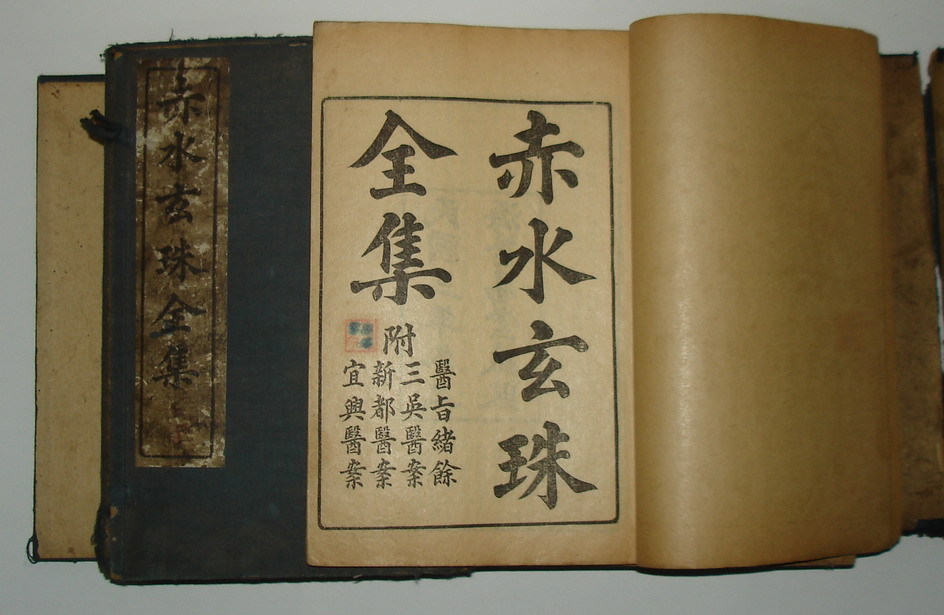 赤水玄珠全集
赤水玄珠
全集
附
醫旨緒餘
三吳醫案
新都醫案
宜興醫案